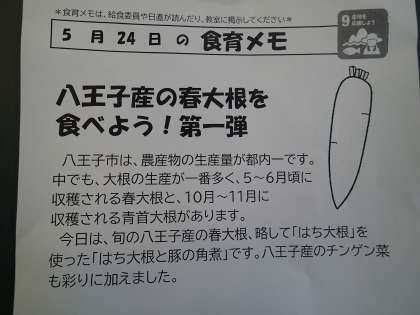 ＊食育メモは、給食委員や日直が読んだり、教室に掲示してください＊
5 月 24 日 の 食育メモ
八王子産の春大根を
食べよう！第一弾
八王子市は、農産物の生産量が都内一です。
中でも、大根の生産が一番多く、5～6月頃に
収穫される春大根と、10月～11月に
収穫される青首大根があります。
今日は、旬の八王子産の春大根、略して「はち大根」を
使った「はち大根と豚の角煮」です。八王子産のチンゲン菜
も彩りに加えました。